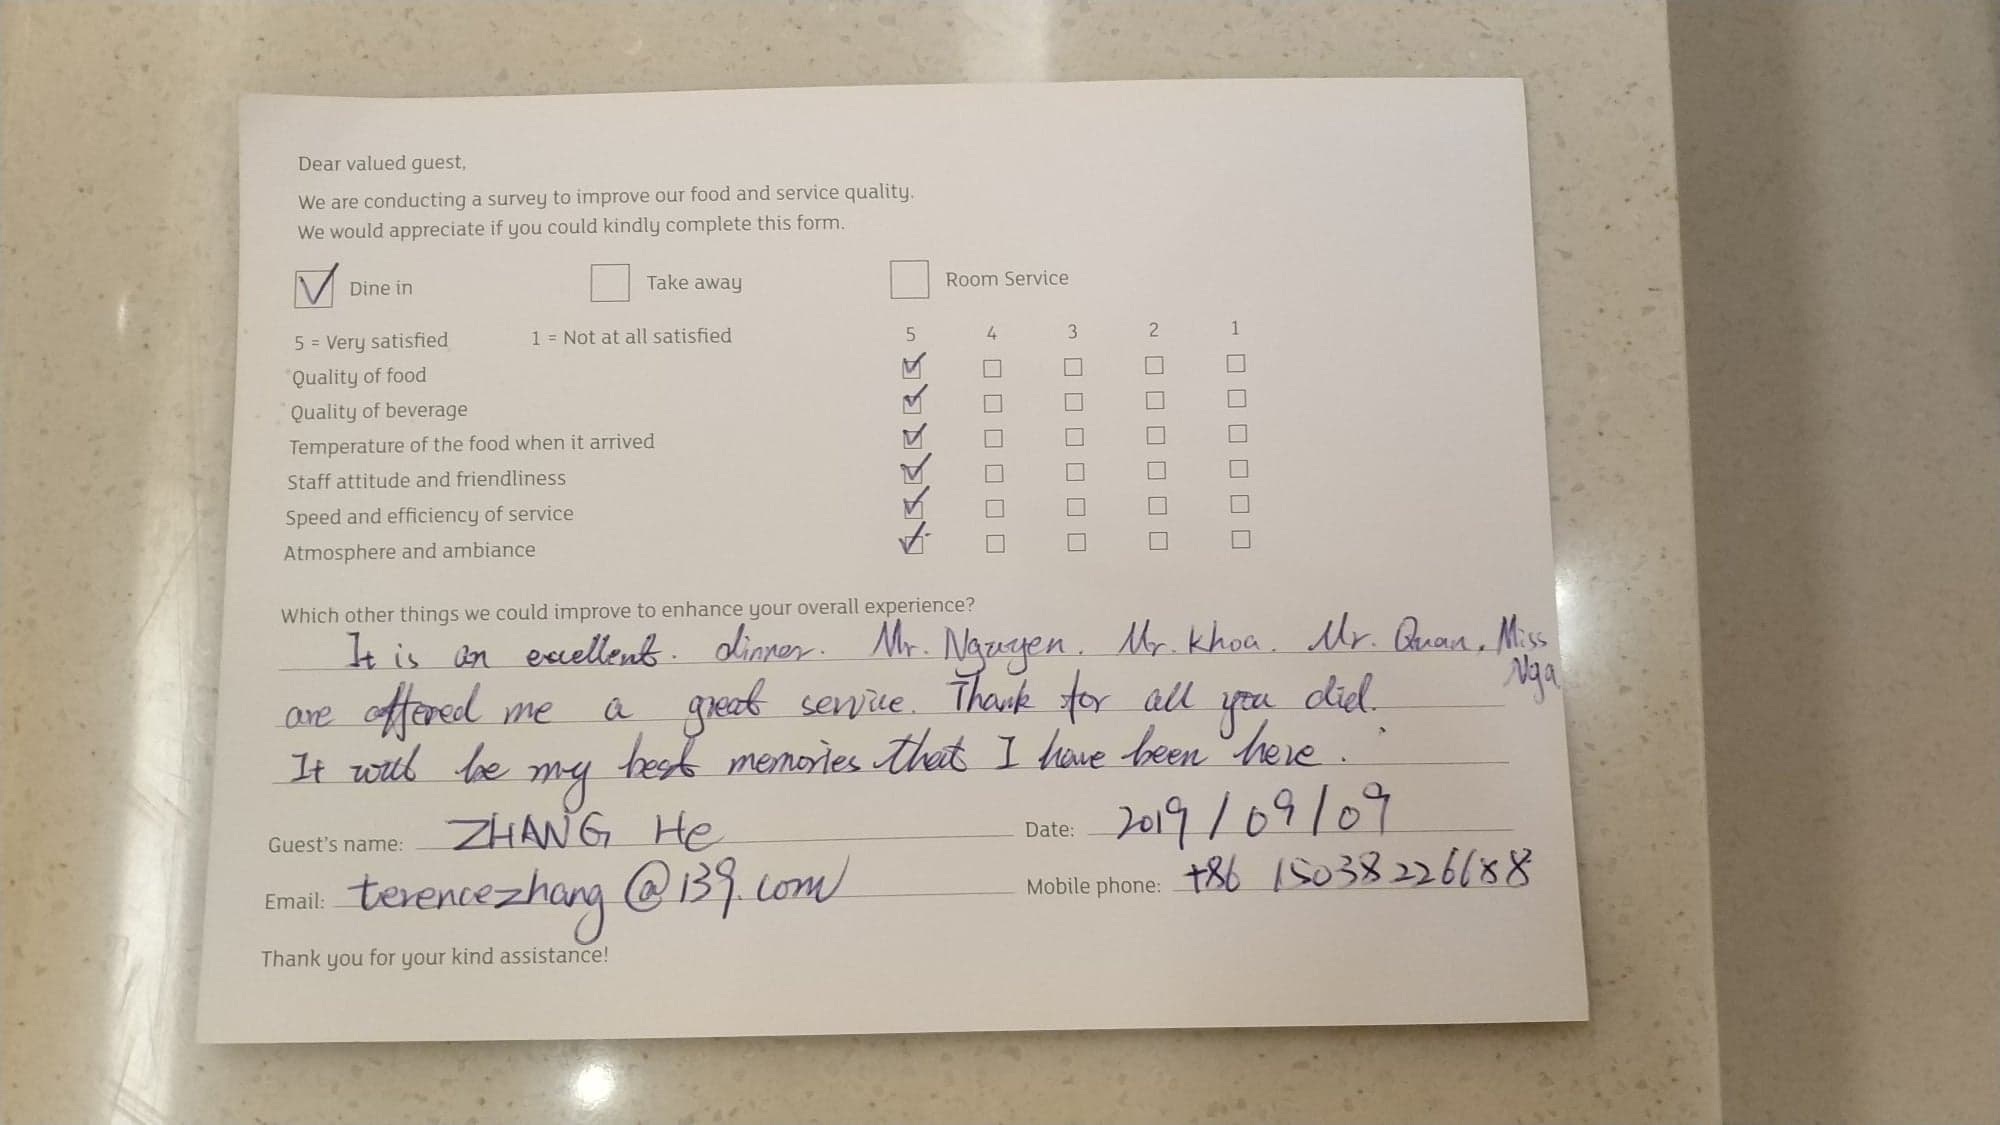 Dear valued guest,
We are conducting a survey to improve our food and service quality.
We would appreciate if you could kindly complete this form.
Dine in Take away Room Service
5 = Very satisfied 1 = Not at all satisfied 5 4 3 2 1
Quality of food
Quality of beverage
Temperature of the food when it arrived
Staff attitude and friendliness
Speed and efficiency of service
Atmosphere and ambiance
Which other things we could improve to enhance your overall experience?
It is an excellent. dinner. Mr. Nguyen. Mr. Khoa. Mr. Quan, Miss
Nga
are offered me a great service. Thank for all you did.
It will be my best memories that I have been here.
Guest's name: ZHANG He Date: 2019/09/09
Email: terencezhang@139.com Mobile phone: +86 15038226688
Thank you for your kind assistance!